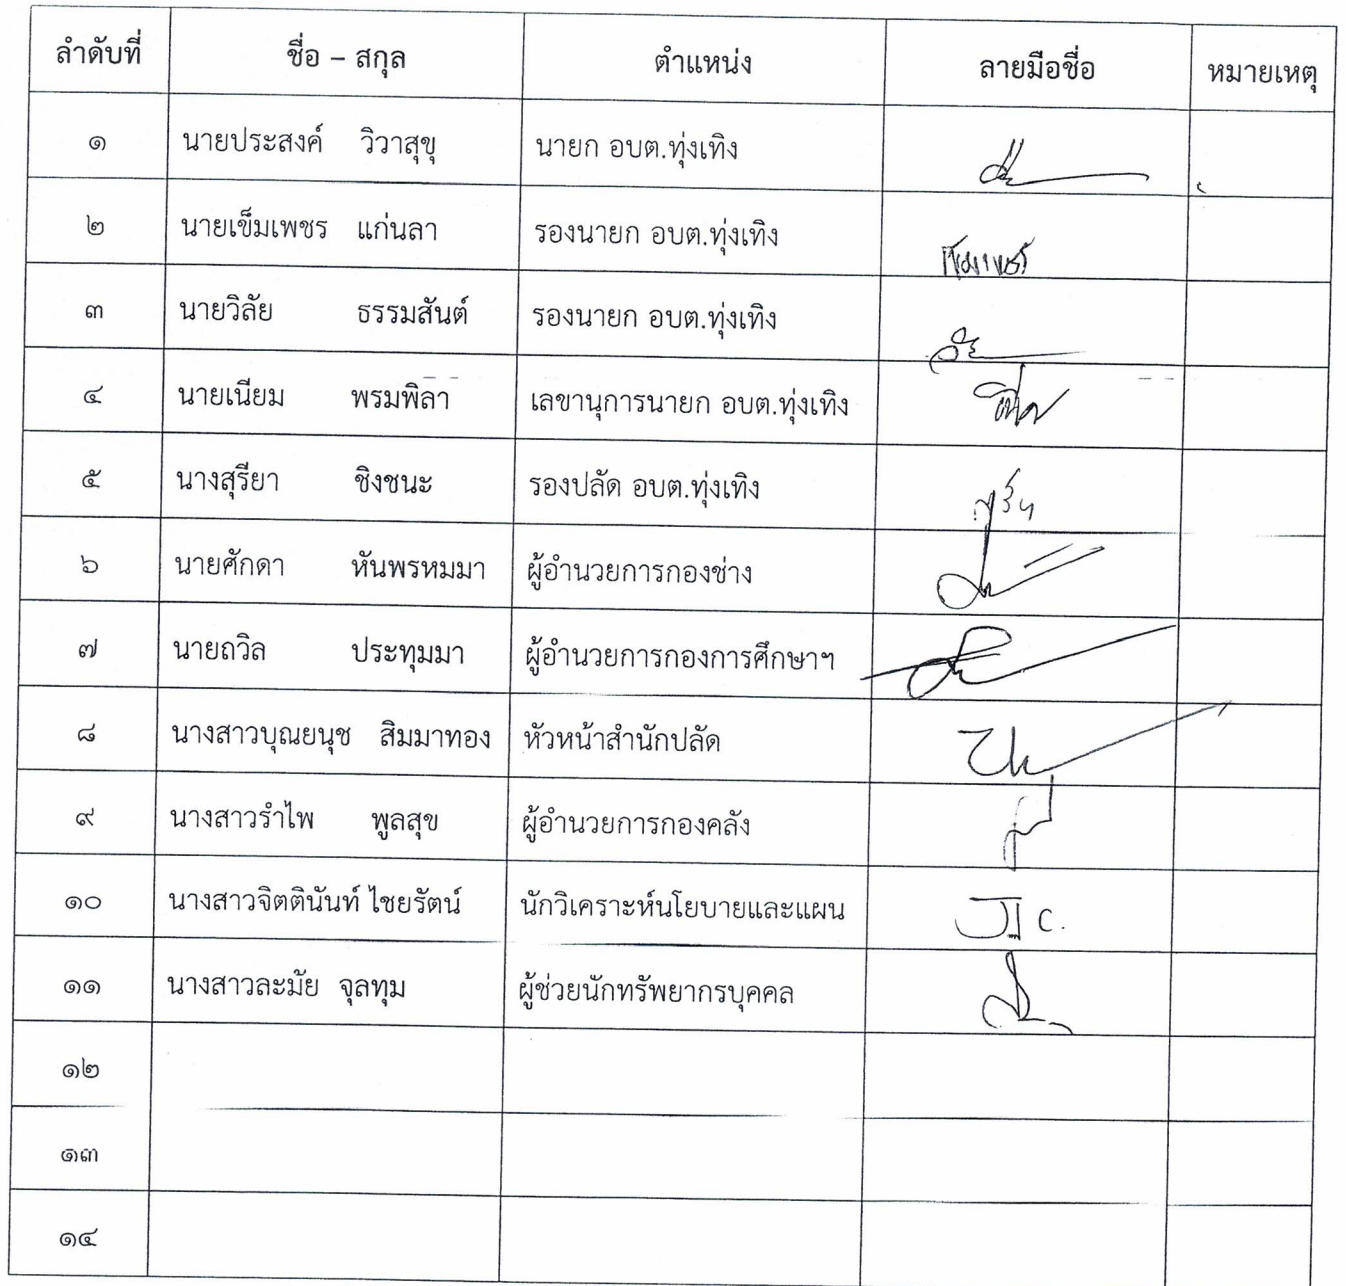 ลำดับที่ ชื่อ – สกุล ตำแหน่ง ลายมือชื่อ หมายเหตุ
๑ นายประสงค์ วิวาสุขุ นายก อบต.ทุ่งเทิง
๒ นายเข็มเพชร แก่นลา รองนายก อบต.ทุ่งเทิง
๓ นายวิลัย ธรรมสันต์ รองนายก อบต.ทุ่งเทิง
๔ นายเนียม พรมพิลา เลขานุการนายก อบต.ทุ่งเทิง
๕ นางสุรียา ชิงชนะ รองปลัด อบต.ทุ่งเทิง
๖ นายศักดา หันพรหมมา ผู้อำนวยการกองช่าง
๗ นายถวิล ประทุมมา ผู้อำนวยการกองการศึกษาฯ
๘ นางสาวบุณยนุช สิมมาทอง หัวหน้าสำนักปลัด
๙ นางสาวรำไพ พูลสุข ผู้อำนวยการกองคลัง
๑๐ นางสาวจิตตินันท์ ไชยรัตน์ นักวิเคราะห์นโยบายและแผน
๑๑ นางสาวละมัย จุลทุม ผู้ช่วยนักทรัพยากรบุคคล
๑๒
๑๓
๑๔